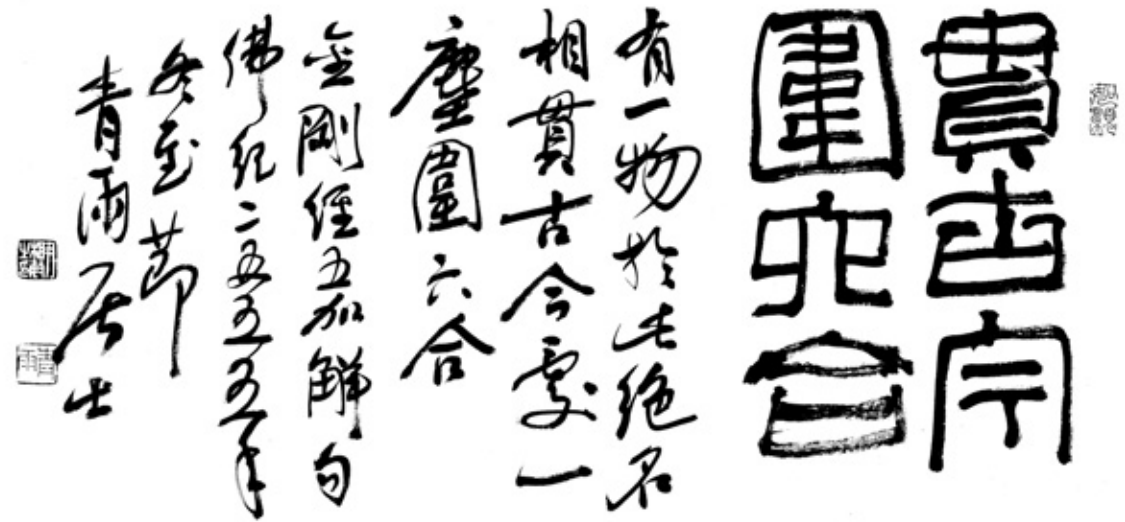 貫古今
圍六合
有一物於此絶名
相貫古今處一
塵圍六合
金剛經五加解句
佛紀二五五五年
冬至節
青雨居士
青雨